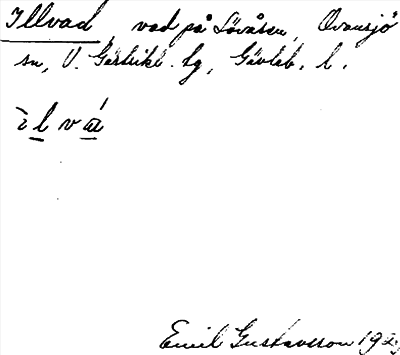 Illvad, vad på Lövåsen, Ovansjö
sn, V. Gästrikl. tg, Gävleb. l.
ì l v á
Emil Gustavsson 192